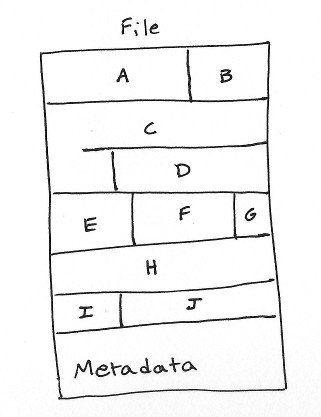 File
A B
C
D
E F G
H
I J
Metadata